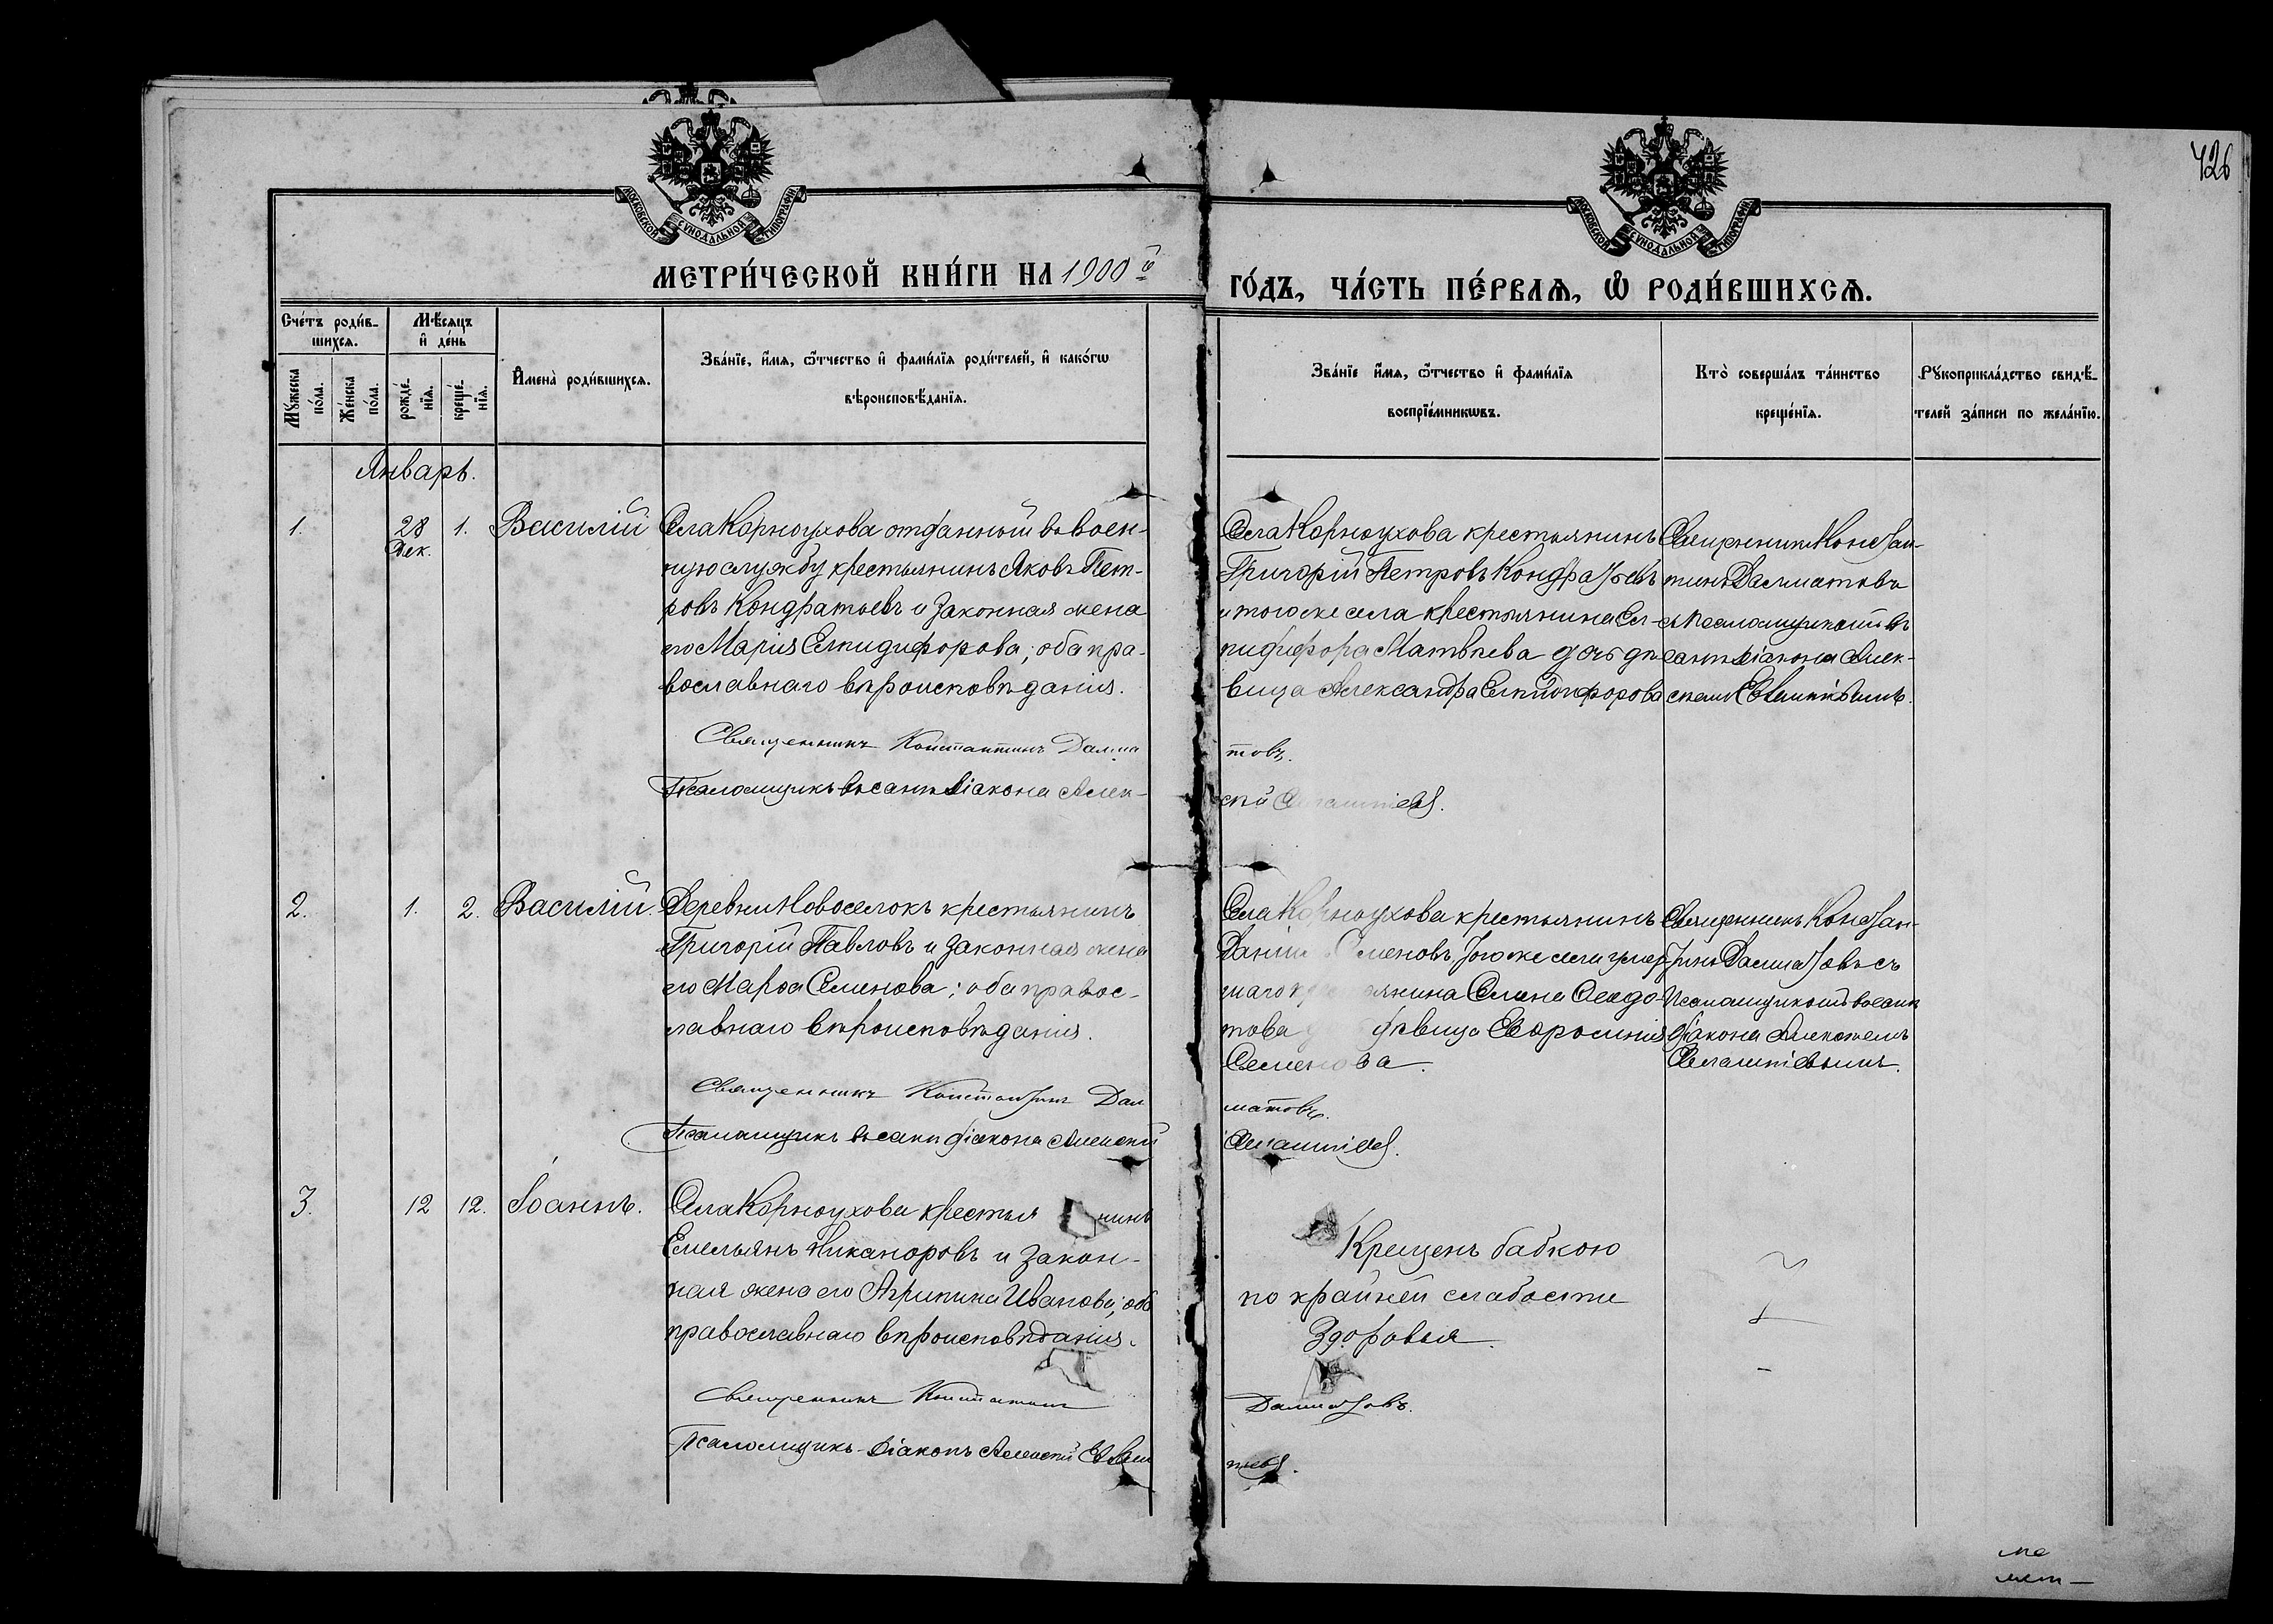 426
МОСКОВСКОЙ СѴНОДАЛЬНОЙ ТИПОГРАФІИ
МОСКОВСКОЙ СѴНОДАЛЬНОЙ ТИПОГРАФІИ
МЕТРИ́ЧЕСКОЙ КНИ́ГИ НА 1900й
ГО́ДЪ, ЧА́СТЬ ПЕ́РВАѦ, Ѡ҆ РОДИ́ВШИХСѦ.
Сче́тъ роди́в-
шихсѧ.
Мꙋжеска по́ла.
Же́нска по́ла.
Мѣ́сѧцъ
и҆ де́нь
рожде́нїѧ.
креще́нїѧ.
И҆мена̀ роди́вшихсѧ.
Зва́нїе, и҆́мѧ, ѻ҆́тчество и҆ фами́лїѧ роди́телей, и҆ како́гѡ
вѣроисповѣ́данїѧ.
Зва́нїе и҆́мѧ, ѻ҆́тчество и҆ фами́лїѧ
воспрїе́мникѡвъ.
Кто̀ соверша́лъ та́инство
креще́нїѧ.
Рꙋкоприкла́дство свидѣ́-
телей за́писи по жела́нїю.
Январь.
1.
28
Дек.
1.
Василій
Села Корноухова отданный въ воен-
ную службу крестьянинъ Яковъ Пет-
ровъ Кондратьевъ и законная жена
его Марія Елпидифорова; оба пра-
вославнаго вѣроисповѣданія.
Священникъ Константинъ Далма
Псаломщикъ въ санѣ діакона Алек-
Села Корноухова крестьянинъ
Григорій Петровъ Кондратьевъ
и того же села крестьянина Ел-
пидифора Матвѣева дочь дѣ-
вица Александра Елпидифорова
товъ.
сѣй
Священникъ Констан-
тинъ Далматовъ
съ псаломщикомъ въ
санѣ діакона Алек-
сѣемъ
2.
1.
2.
Василій.
Деревни Новоселокъ крестьянинъ
Григорій Павловъ и законная жена
его Марѳа Семенова; оба правос-
лавнаго вѣроисповѣданія.
Священникъ Константинъ Дал
Псаломщикъ въ санѣ діакона Алексѣй
Села Корноухова крестьянинъ
Семеновъ, того же села умер-
шаго Семена
това дѣвица Евфросинія
Семенова.
матовъ.
Священникъ Констан-
тинъ Далматовъ съ
псаломщикомъ въ санѣ
діакона Алексѣемъ
3.
12
12.
Іоаннъ.
Села Корноухова крестьянинъ
Емельянъ Никаноровъ и закон-
ная жена его Агрипина Иванова; оба
православнаго вѣроисповѣданія.
Священникъ Константинъ
Псаломщикъ-діаконъ Алексѣй
Крещенъ бабкою
по крайней слабости
здоровья.
Далматовъ.